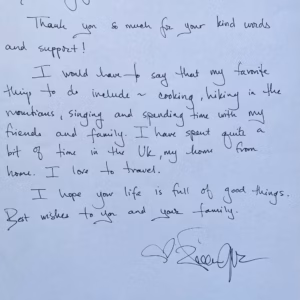 Thank you so much for your kind words
and support!
I would have to say that my favorite
things to do include ~ cooking, hiking in the
mountians, singing and spending time with my
friends and family. I have spent quite a
bit of time in the UK, my home from
home. I love to travel.
I hope your life is full of good things.
Best wishes to you and your family.